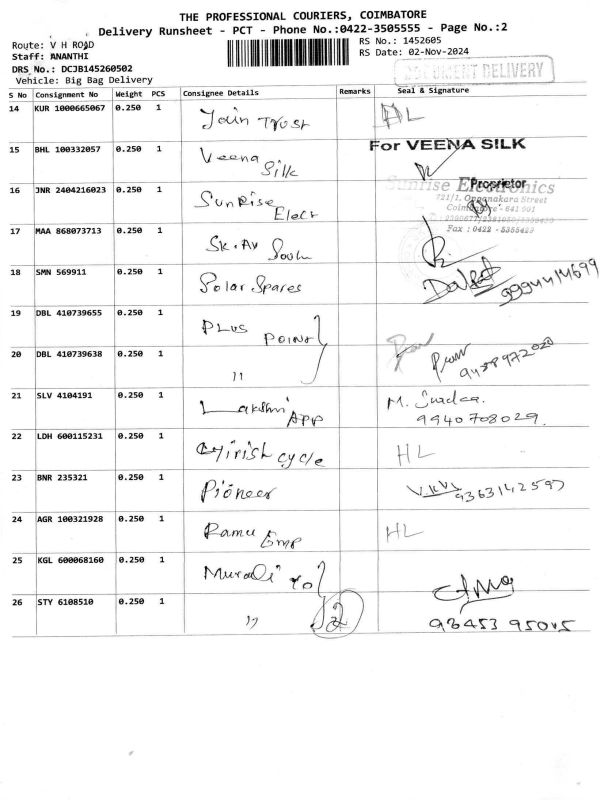 THE PROFESSIONAL COURIERS, COIMBATORE
Delivery Runsheet - PCT - Phone No.:0422-3505555 - Page No.:2
Route: V H ROAD
Staff: ANANTHI
DRS No.: DCJB145260502
Vehicle: Big Bag Delivery
RS No.: 1452605
RS Date: 02-Nov-2024
DOCUMENT DELIVERY
S No Consignment No Weight PCS Consignee Details Remarks Seal & Signature
14 KUR 1000665067 0.250 1 Join Trust HL
15 BHL 100332057 0.250 1 Veena Silk For VEENA SILK
Proprietor
16 JNR 2404216023 0.250 1 SunRise Elect
Sunrise Electronics
721/1, Oppanakara Street
Coimbatore - 641 001
Fax : 0422 - 5355429
17 MAA 868073713 0.250 1 SK.AV
18 SMN 569911 0.250 1 Polar Spares 9994414699
19 DBL 410739655 0.250 1 PLUS POINT
20 DBL 410739638 0.250 1 "
21 SLV 4104191 0.250 1 Lakshmi APP M.
9940708029
22 LDH 600115231 0.250 1 Girish cycle HL
23 BNR 235321 0.250 1 Pioneer 9363142597
24 AGR 100321928 0.250 1 Ramu Emp HL
25 KGL 600068160 0.250 1 Murali
26 STY 6108510 0.250 1 " 2